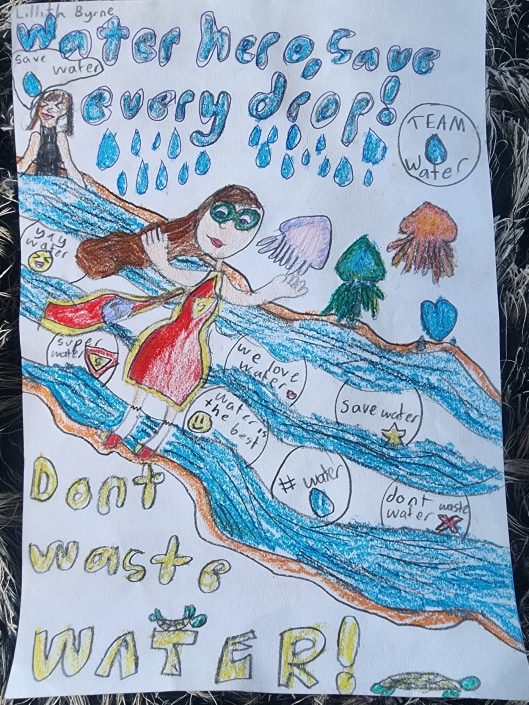 Lillith Byrne
Water hero, save
save
water
every drop!
TEAM
water
yay
water
super
water
we love
water
save water
water is
the best
# water
dont waste
water
Dont
waste
WATER!